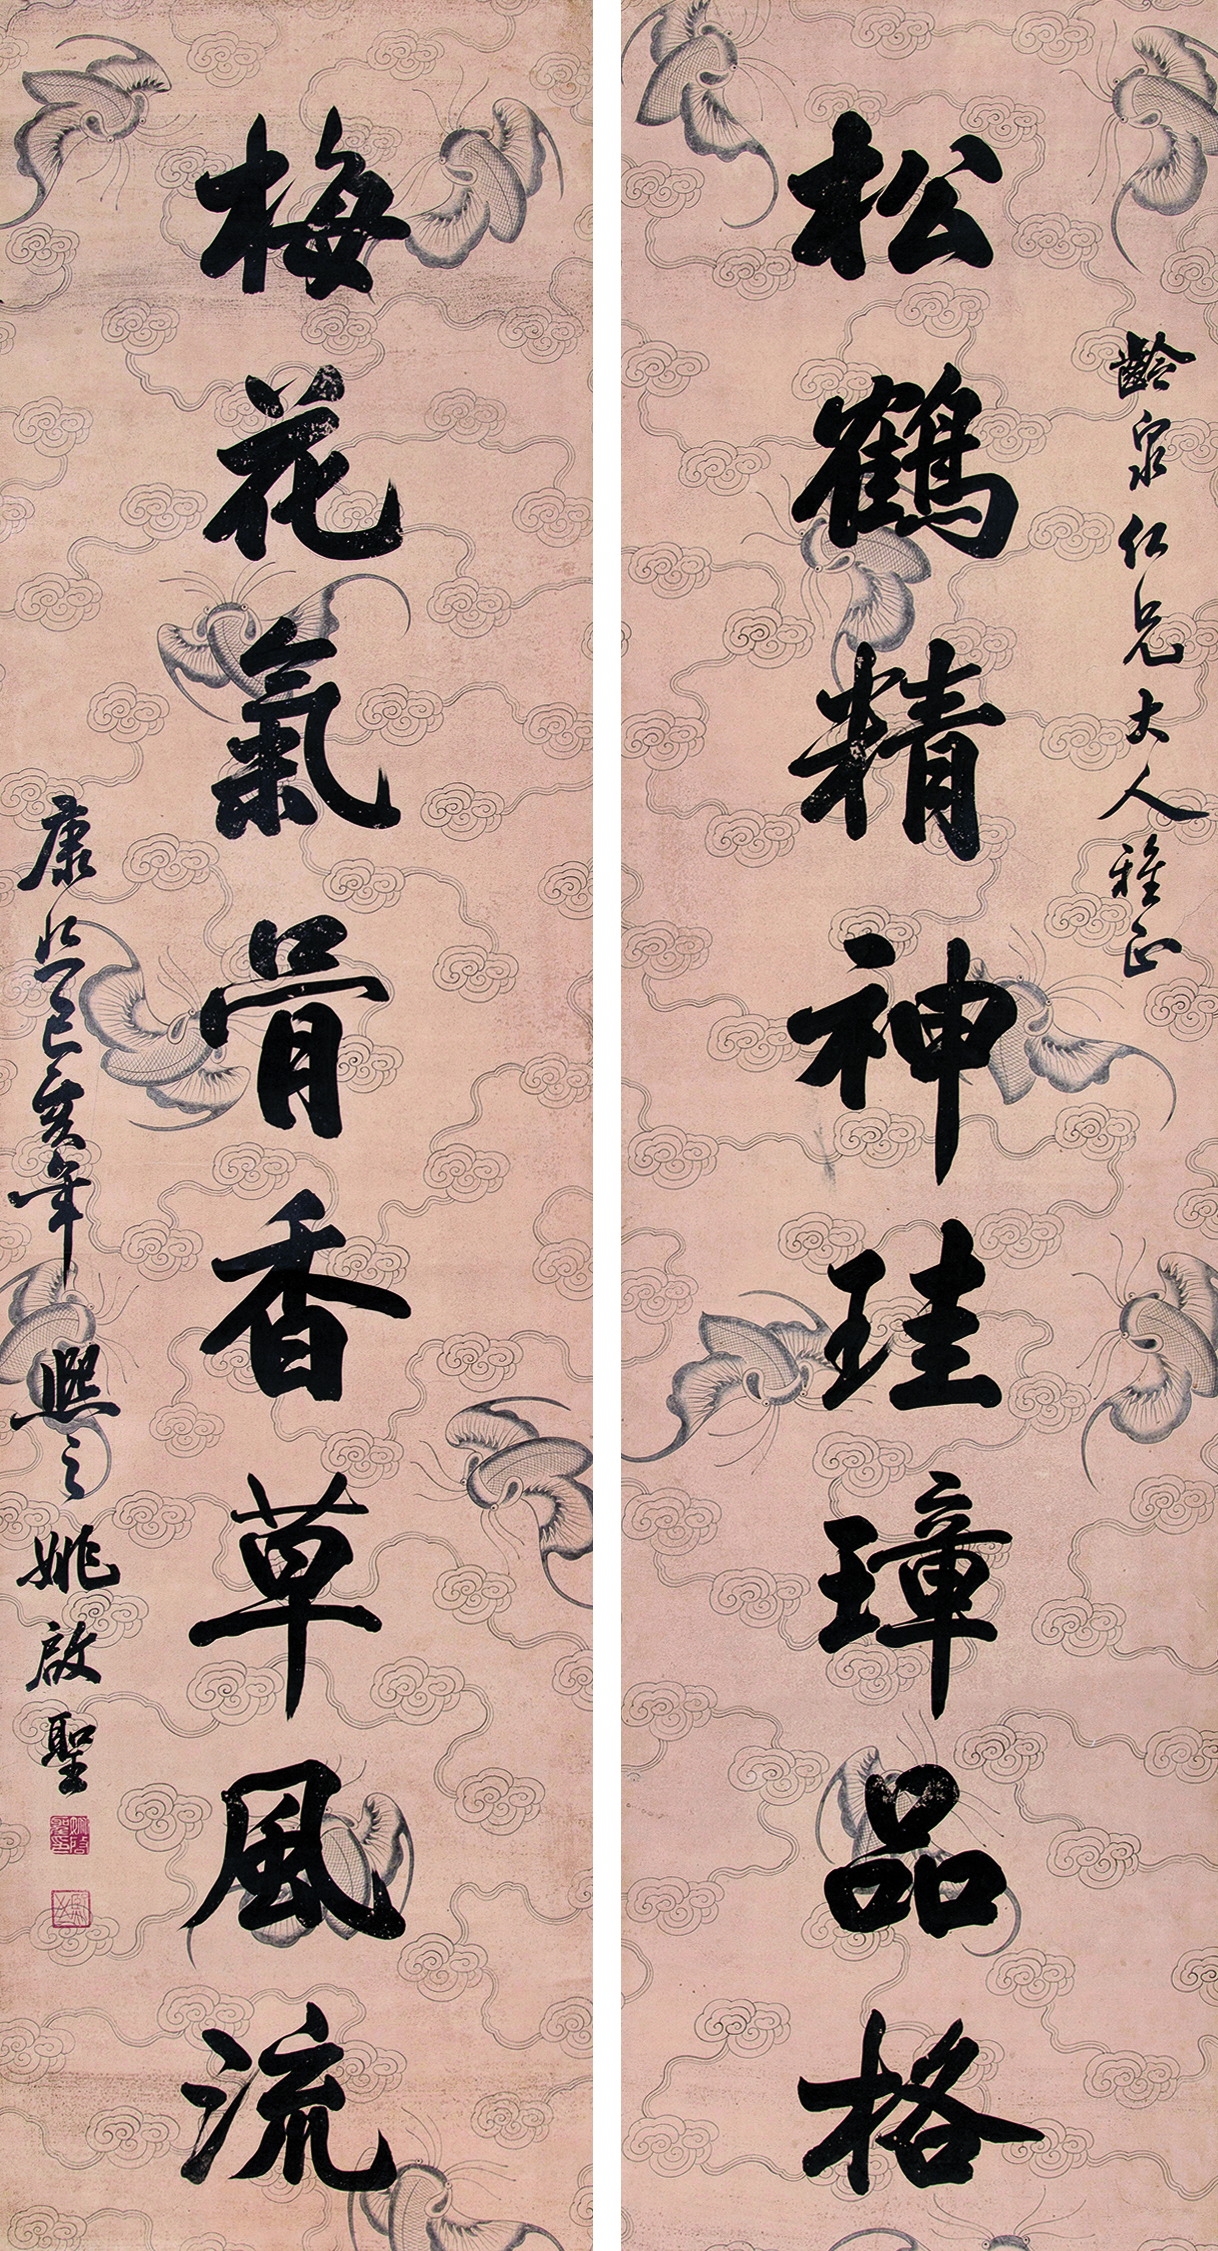 齡泉仁兄大人雅正
松鶴精神珪璋品格
梅花氣骨香草風流
康熙己亥年 熙之姚啟聖